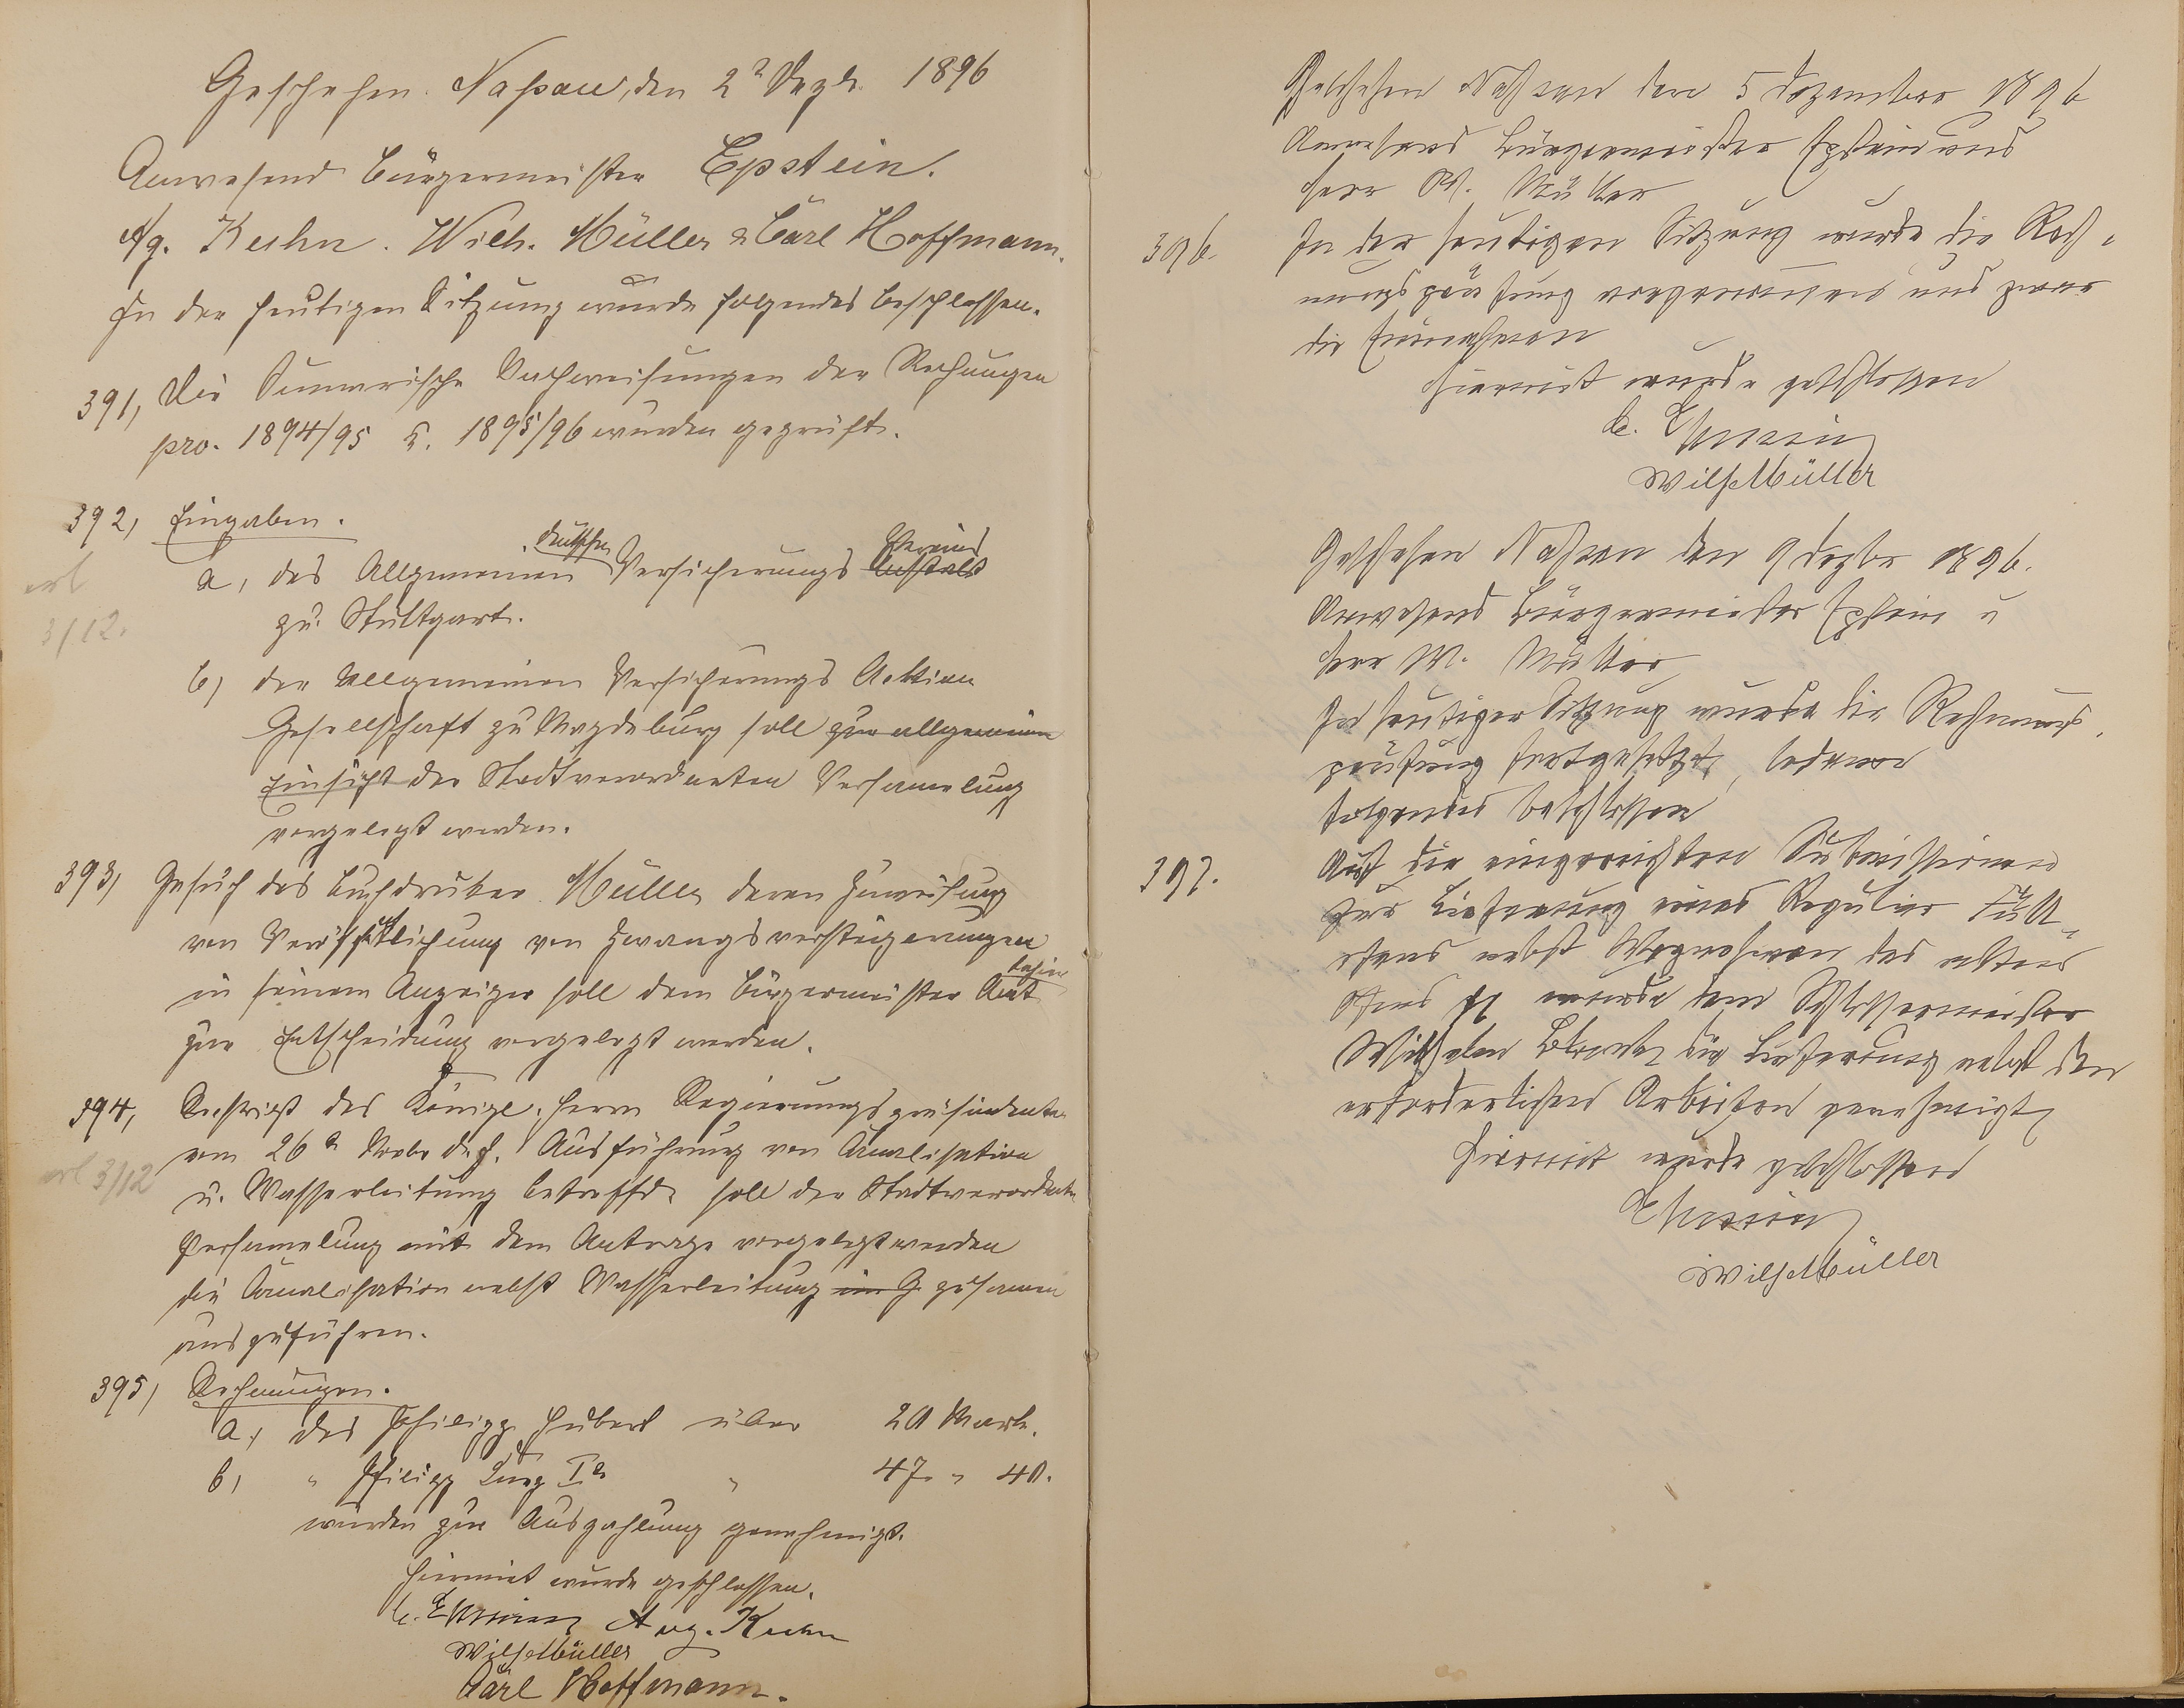 Geschehen. Naßau, den 2ᵗ Dezbr. 1896
Anwesend Bürgermeister Epstein.
Ag. Kuhn. Wilh. Müller & Carl Hoffmann.
In der heutigen Sitzung wurde folgendes beschlossen.
391, Die Sumarische Nachweisungen der Rechungen
pro. 1894/95 u. 1895/96 wurden geprüft.
392, Eingaben.
erl
3/12.
a, des Allgemeinen deutschen Versicherungs Anstalt Vereins
zu Stuttgart.
b, der Allgemeinen Versicherungs Aktien
Gesellschaft zu Magdeburg soll zur allgemeinen
Einsicht der Stadtverordneten Versamelung
vorgelegt werden.
393, Gesuch des Buchdruker Müller deren Zuweisung
von Veröffentlichung von Zwangsversteigerungen
in seinem Anzeiger soll dem Bürgermeister Amt dahier
zur Entscheidung vorgelegt werden.
394, Rescript des Königl. Herrn Regierungspräsidenten
vom 26ᵗ Novbr d. J. Ausführung von Canalisation
erl 3/12
u. Wasserleitung betreffd. soll der Stadtverordneten
Versamelung mit dem Antrage vorgelegt werden
die Canalisation nebst Wasserleitung im G zusamen
auszuführen.
395, Rechnungen.
a, des Philipp Hubert über 20 Mark.
b, " Philipp Iᵗ " 47. " 40.
wurden zur Auszahlung genehmigt.
Hiermit wurde geschlossen.
Epstein Aug. Kuhn
Wilh Müller
Carl Hoffmann.
Geschehen Naßau den 5 Dezember 1896
Anwesend Bürgermeister Epstein und
Herr W. Müller
396. In der heutigen Sitzung wurde die Rech-
nungsprüfung vorgenommen und zwar
die Einnahmen
Hiermit wurde geschlossen
Epstein
Wilh Müller
Geschehen Naßau den 9 Dezbr 1896.
Anwesend Bürgermeister Epstein u
Herr W. Müller
In heutiger Sitzung wurde die Rechnungs-
prüfung fortgesetzt, sodann
folgendes beschlossen
397. Auf die eingereichten Submissionen
zur Lieferung eines Regulier Füll-
ofens nebst Wegnehmen des alten
Ofens wurde dem Schlossermeister
Wilhelm die Lieferung nebst den
erforderlichen Arbeiten genehmigt
Hiermit wurde geschlossen
Epstein
Wilh Müller